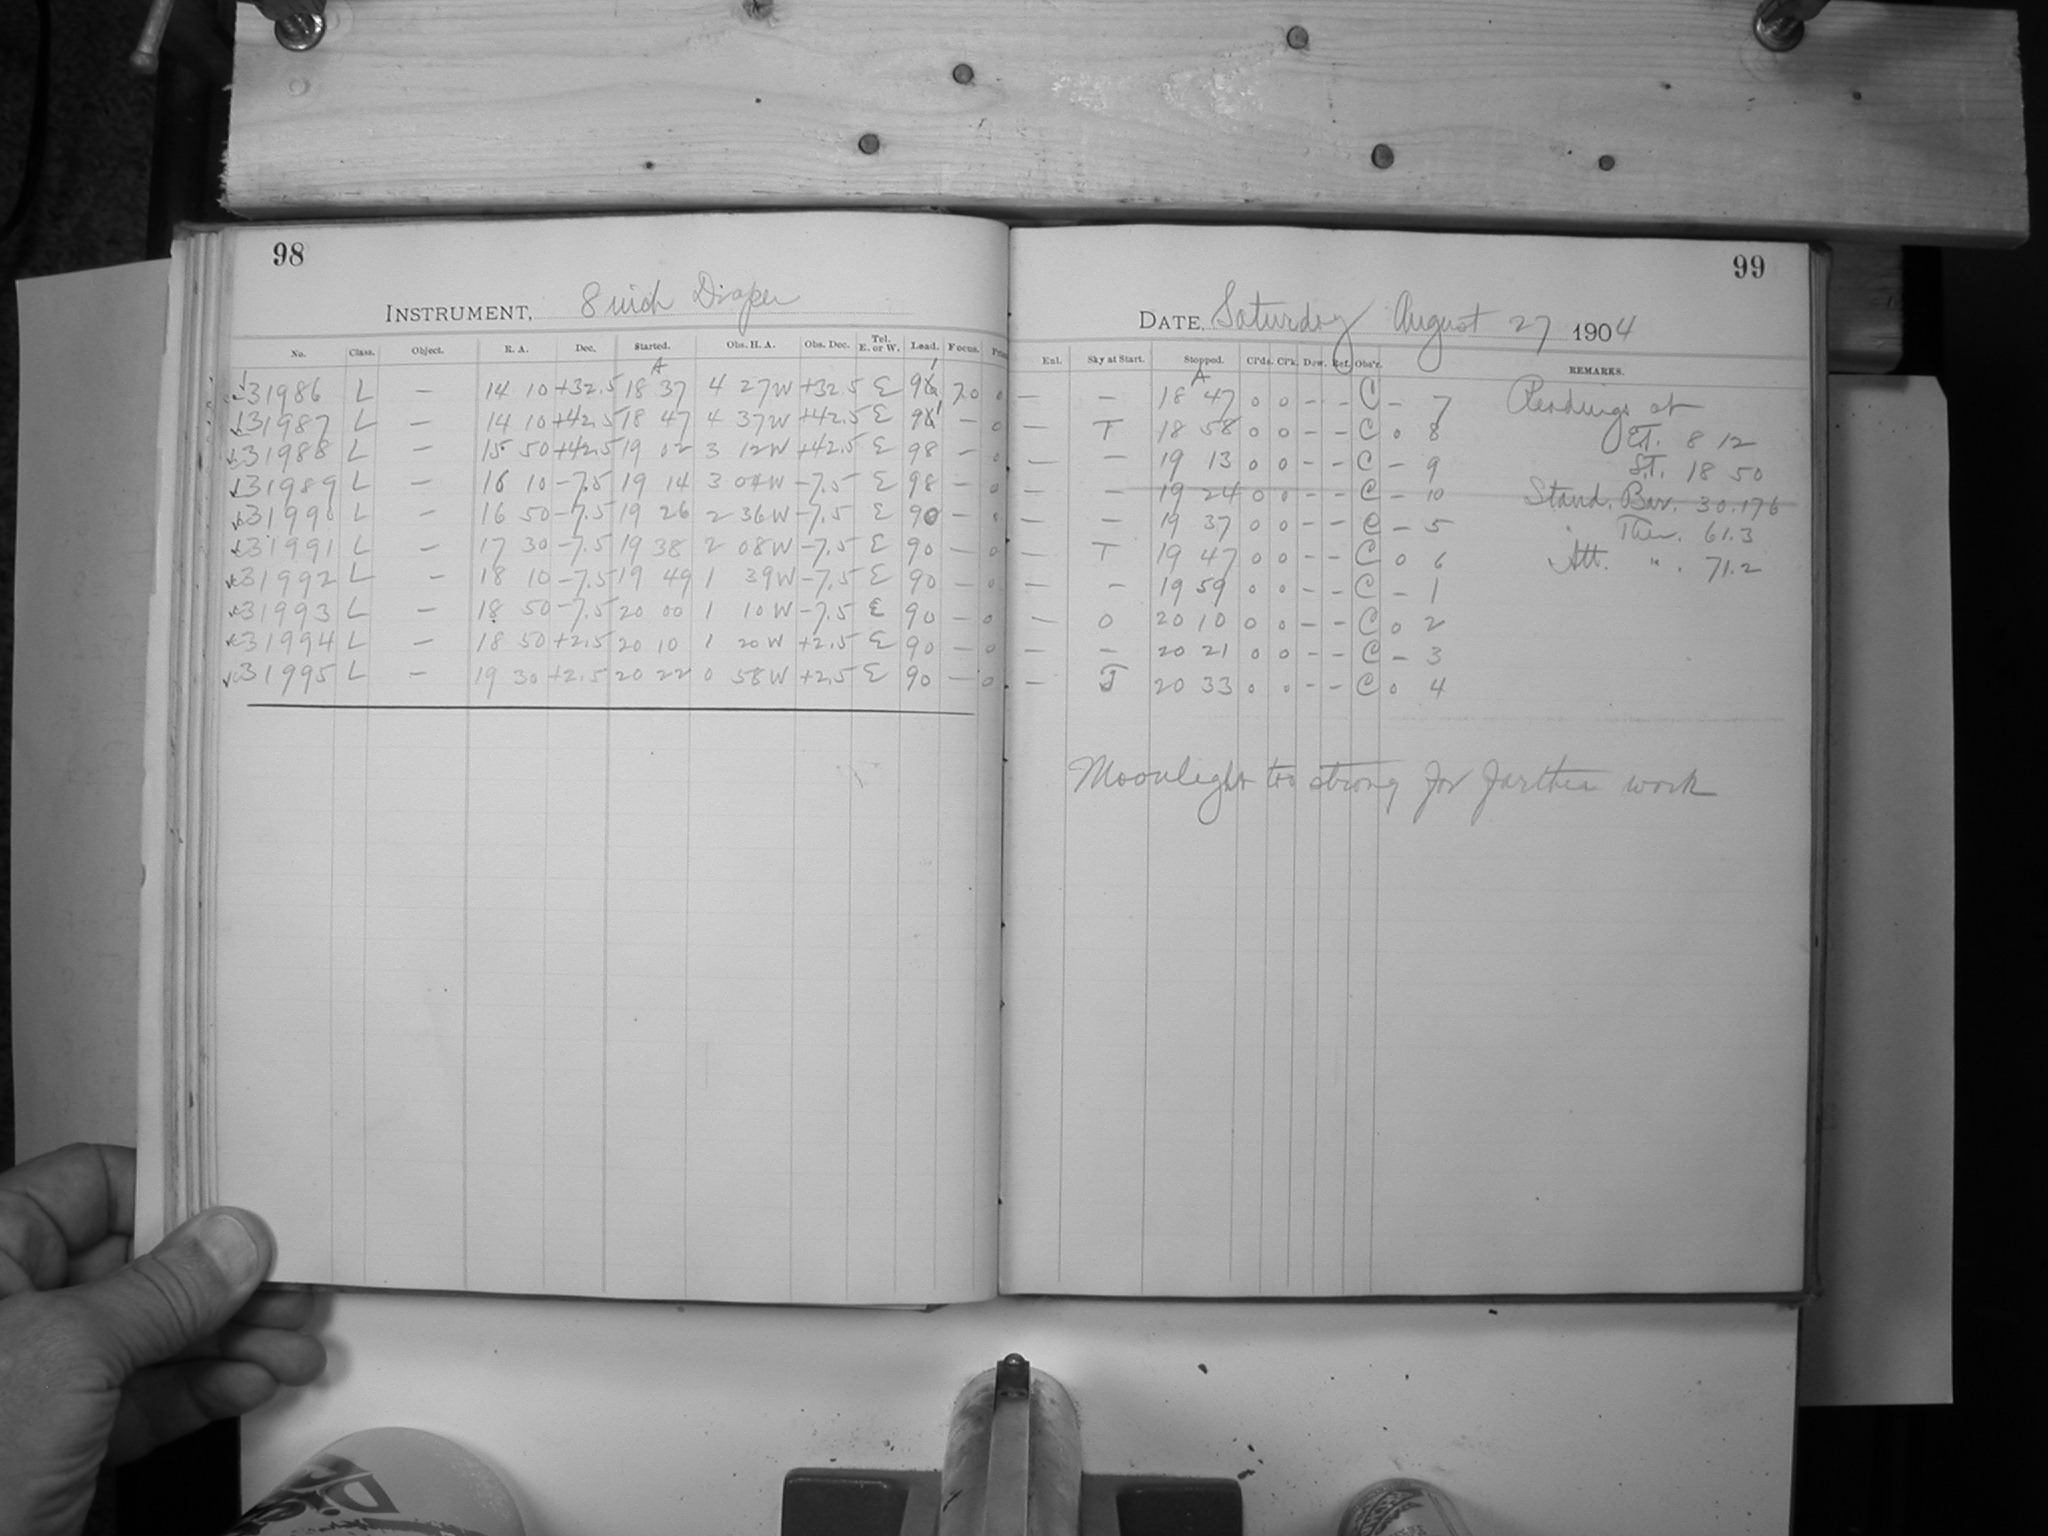 98
INSTRUMENT, 8 inch Draper
No. Class. Object. R. A. Dec. Started. Obs. H. A. Obs. Dec. Tel. E. or W. Load. Focus.
A
31986 L — 14 10 +32.5 18 37 4 27W +32.5 E 7.0 0
31987 L — 14 10 +42.5 18 47 4 37W +42.5 E — 0
31988 L — 15 50 +42.5 19 02 3 12W +42.5 E 98 — 0
31989 L — 16 10 -7.5 19 14 3 04W -7.5 E 98 — 0
31990 L — 16 50 -7.5 19 26 2 36W -7.5 E 90 — 0
31991 L — 17 30 -7.5 19 38 2 08W -7.5 E 90 — 0
31992 L — 18 10 -7.5 19 49 1 39W -7.5 E 90 — 0
31993 L — 18 50 -7.5 20 00 1 10W -7.5 E 90 — 0
31994 L — 18 50 +2.5 20 10 1 20W +2.5 E 90 — 0
31995 L — 19 30 +2.5 20 22 0 58W +2.5 E 90 — 0
99
DATE, Saturday August 27 1904
Enl. Sky at Start. Stopped. Cl'ds. Cl'k. Dew. Ref. Obs'r. REMARKS.
A
— — 18 47 0 0 - - C - 7 Readings at
— T 18 58 0 0 - - C 0 8 E.T. 8 12
— — 19 13 0 0 - - C - 9 S.T. 18 50
— — 19 24 0 0 - - C - 10 Stand. Bar. 30.176
— — 19 37 0 0 - - C - 5 Ther. 61.3
— T 19 47 0 0 - - C 0 6 Att. " . 71.2
— — 19 59 0 0 - - C - 1
— 0 20 10 0 0 - - C 0 2
— — 20 21 0 0 - - C - 3
— T 20 33 0 0 - - C 0 4
Moonlight too strong for farther work